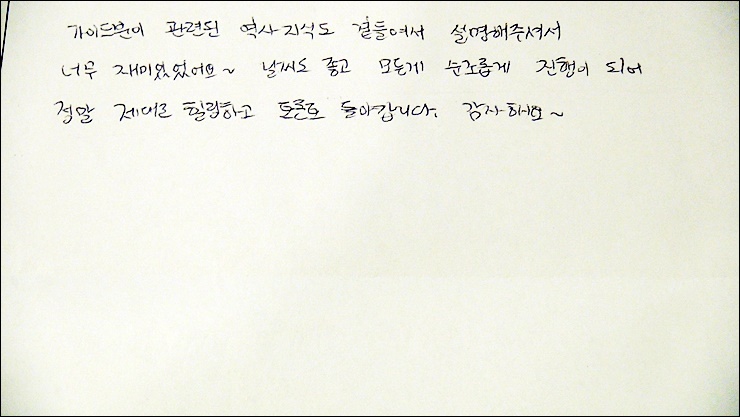 가이드분이 관련된 역사지식도 곁들여서 설명해주셔서
너무 재미있었어요~ 날씨도 좋고 모든게 순조롭게 진행이 되어
정말 제대로 힐링하고 돌아갑니다. 감사해요~